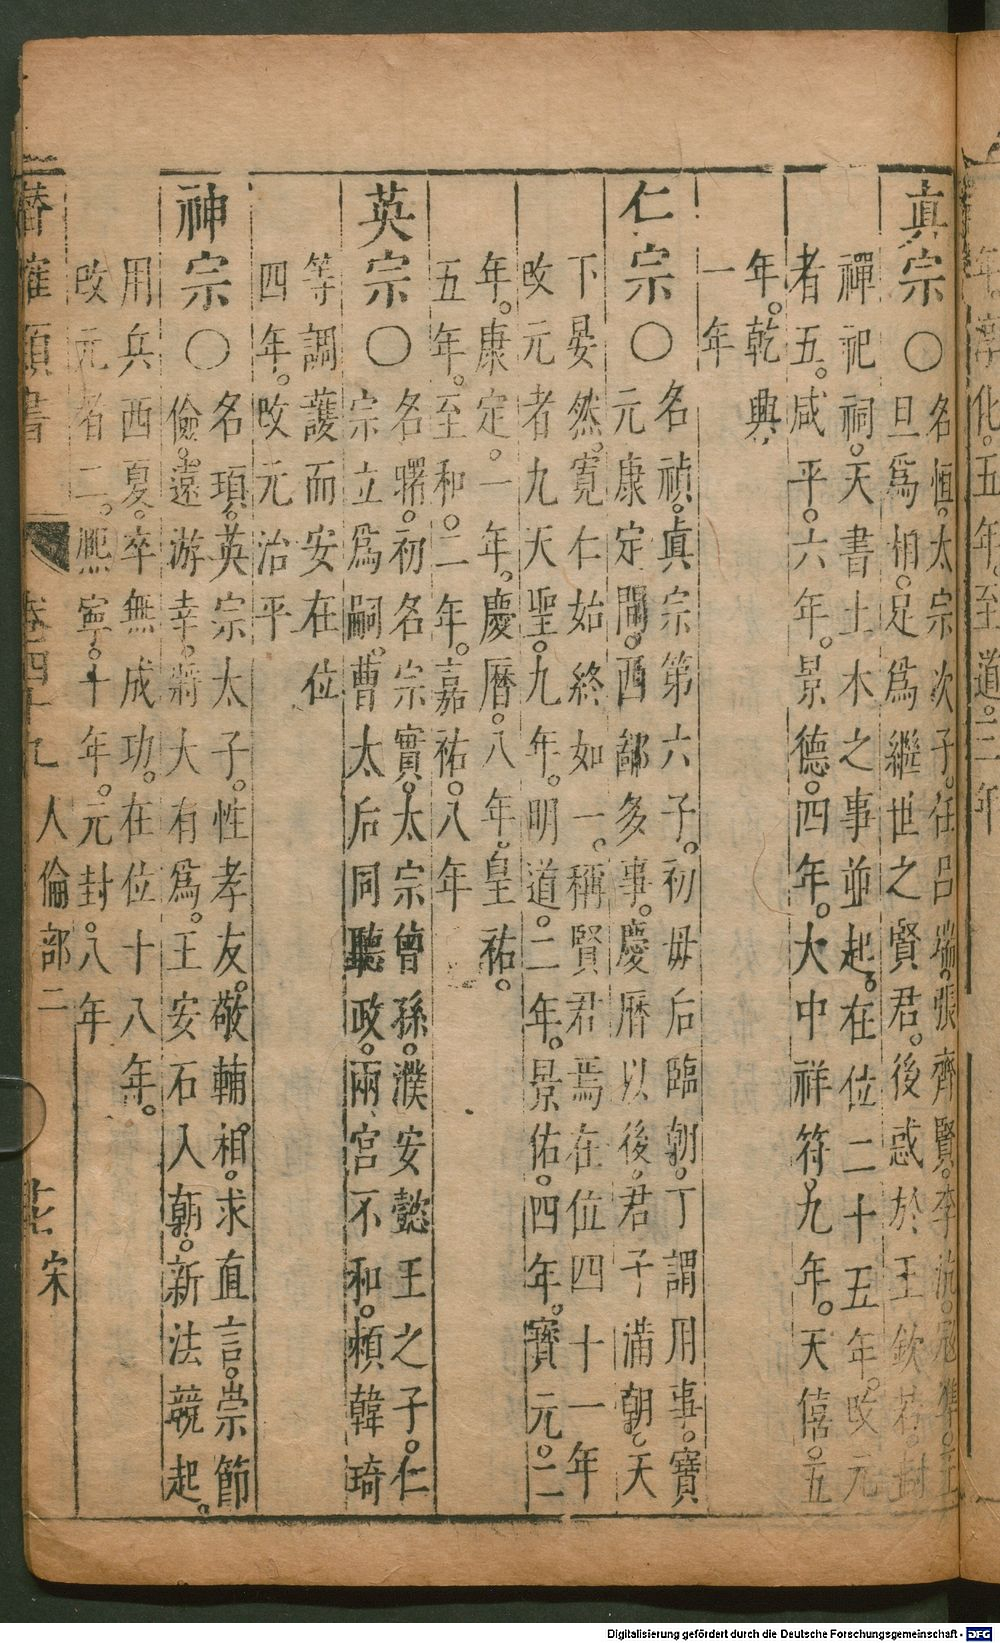 年。淳化。五年。至道。三年
真宗○名恒。太宗次子。任呂端。張齊賢。李沆。寇準。王
旦爲相。足爲繼世之賢君。後惑於王欽若。封
禪祀祠。天書土木之事並起。在位二十五年。改元
者五。咸平。六年。景德。四年。大中祥符。九年。天僖。五
年。乾興。
一年
仁宗○名禎。眞宗第六子。初毋后臨朝。丁謂用事。寶
元康定間。西鄙多事。慶曆以後。君子滿朝。天
下晏然。寛仁始終如一。稱賢君焉在位四十一年
改元者九天聖。九年。明道。二年。景佑。四年。寶元。二
年。康定。一年。慶曆。八年。皇祐。
五年。至和。二年。嘉祐。八年
英宗○名曙。初名宗實。太宗曾孫。濮安懿王之子。仁
宗立爲嗣。曹太后同聽政。兩宮不和。頼韓琦
等調護而安在位
四年。改元治平
神宗○名頊。英宗太子。性孝友。敬輔相。求直言。崇節
儉。遠游幸。將大有爲。王安石入朝。新法競起。
用兵西夏。卒無成功。在位十八年。
改元者二。熈寧。十年。元封。八年
潛確類書 卷四十九 人倫部二 宋
Digitalisierung gefördert durch die Deutsche Forschungsgemeinschaft - DFG